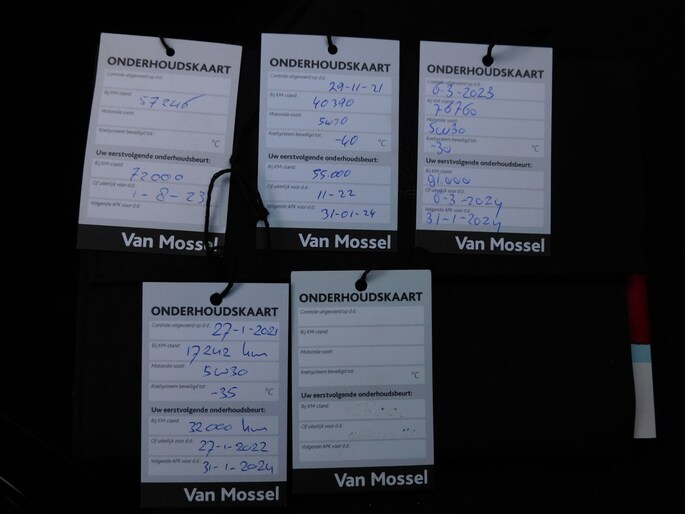 ONDERHOUDSKAART
Controle uitgevoerd op d.d.:
Bij KM-stand:
57246
Motorolie soort:
Koelsysteem beveiligd tot:
°C
Uw eerstvolgende onderhoudsbeurt:
Bij KM-stand:
72000
Of uiterlijk voor d.d.:
1-8-23
Volgende APK voor d.d.:
Van Mossel
ONDERHOUDSKAART
Controle uitgevoerd op d.d.:
29-11-21
Bij KM-stand:
40390
Motorolie soort:
Koelsysteem beveiligd tot:
-40 °C
Uw eerstvolgende onderhoudsbeurt:
Bij KM-stand:
55.000
Of uiterlijk voor d.d.:
11-22
Volgende APK voor d.d.:
31-01-24
Van Mossel
ONDERHOUDSKAART
Controle uitgevoerd op d.d.:
6-3-2023
Bij KM-stand:
76760
Motorolie soort:
5w30
Koelsysteem beveiligd tot:
-30 °C
Uw eerstvolgende onderhoudsbeurt:
Bij KM-stand:
91.000
Of uiterlijk voor d.d.:
6-3-2024
Volgende APK voor d.d.:
31-1-2024
Van Mossel
ONDERHOUDSKAART
Controle uitgevoerd op d.d.:
27-1-2021
Bij KM-stand:
17242 km
Motorolie soort:
5w30
Koelsysteem beveiligd tot:
-35 °C
Uw eerstvolgende onderhoudsbeurt:
Bij KM-stand:
32000 km
Of uiterlijk voor d.d.:
27-1-2022
Volgende APK voor d.d.:
31-1-2024
Van Mossel
ONDERHOUDSKAART
Controle uitgevoerd op d.d.:
Bij KM-stand:
Motorolie soort:
Koelsysteem beveiligd tot:
°C
Uw eerstvolgende onderhoudsbeurt:
Bij KM-stand:
Of uiterlijk voor d.d.:
Volgende APK voor d.d.:
Van Mossel